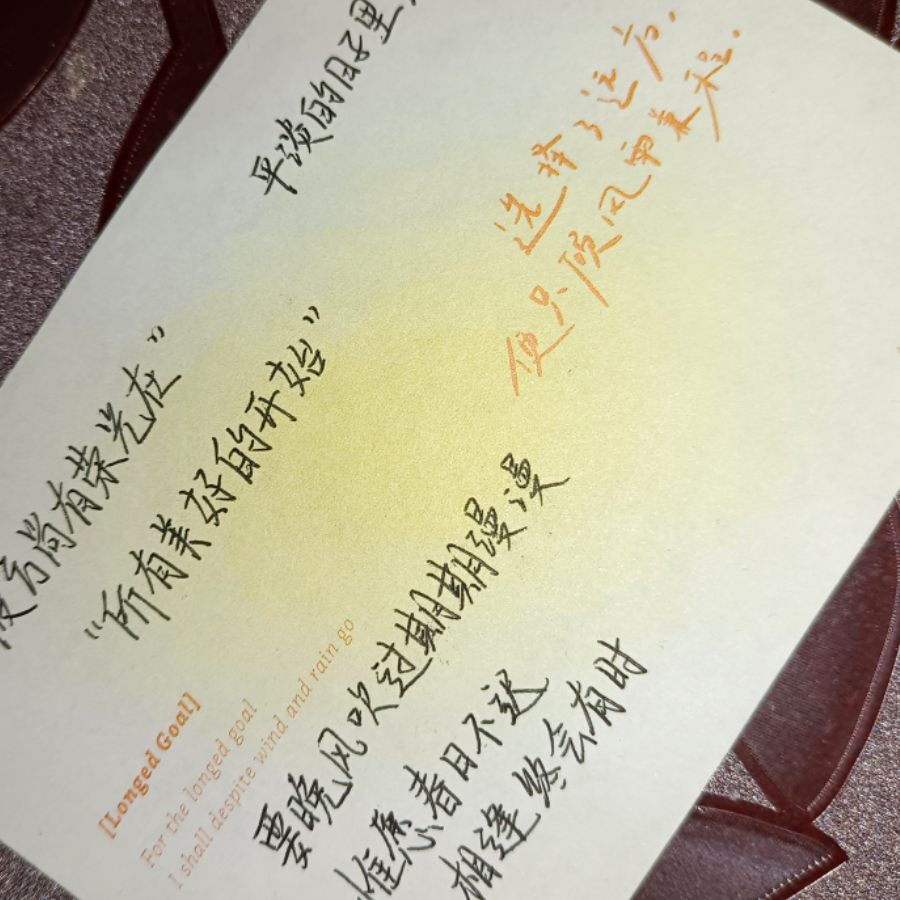 平淡的日子里
选择了远方.
便只顾风雨兼程.
彼方尚有荣光在”
“所有美好的开始”
[Longed Goal]
For the longed goal
I shall despite wind and rain go
要晚风吹过期期漫漫
惟愿春日不迟
相逢终会有时